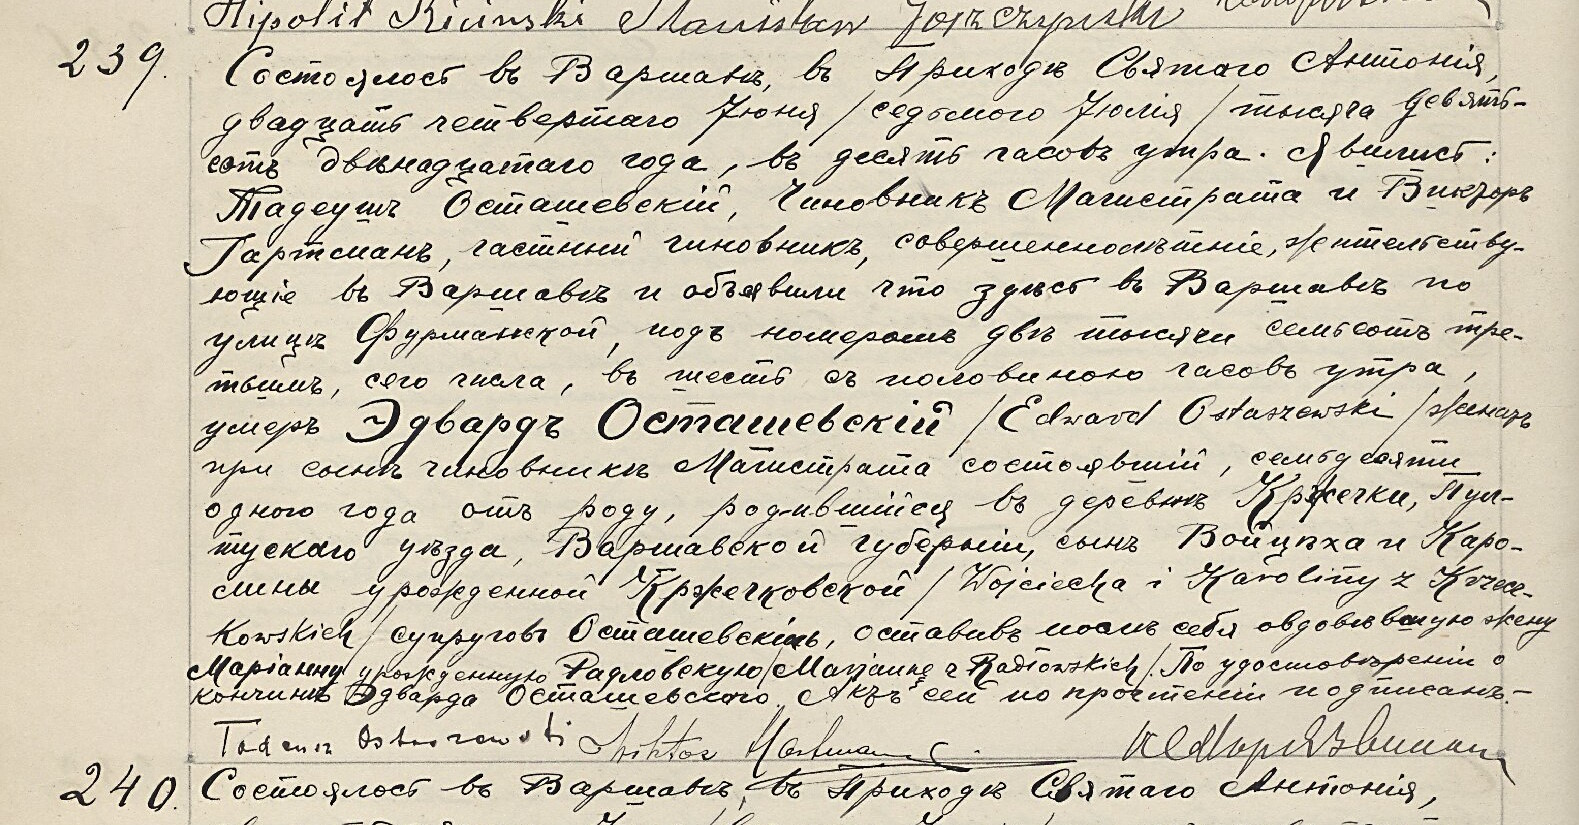 Hipolit Kicinski Stanisław
239.
Состоялось въ Варшавѣ, въ Приходѣ Святаго Антонія,
двадцать четвертаго Іюня /седьмого Іюля/ тысяча девять-
сотъ двѣнадцатаго года, въ десять часовъ утра. Явились:
Тадеушъ Осташевскій, Чиновникъ Магистрата и Викторъ
Гартманъ, частный чиновникъ, совершеннолѣтніе, жительству-
ющіе въ Варшавѣ и объявили что здѣсь въ Варшавѣ по
улицѣ Фурманской, подъ номеромъ двѣ тысячи семьсотъ тре-
тьимъ, сего числа, въ шесть съ половиною часовъ утра,
умеръ Эдвардъ Осташевскій /Edward Ostaszewski/ женатъ
при сынѣ чиновникѣ Магистрата состоявшій, семьдесяти
одного года отъ роду, родившійся въ деревнѣ Кржечки, Пул-
тускаго уѣзда, Варшавской губерніи, сынъ Войцѣха и Каро-
лины урожденной Кржечковской /Wojciecha i Karoliny z Krzecz-
kowskich/ супруговъ Осташевскихъ, оставивъ послѣ себя овдовѣвшую жену
Маріанну урожденную Радловскую /Marjannę z Radłowskich/. По удостовѣреніи о
кончинѣ Эдварда Осташевскаго, Актъ сей по прочтеніи подписанъ.-
Tadeusz Ostaszewski Wiktor Hartman
240.
Состоялось въ Варшавѣ, въ Приходѣ Святаго Антонія,